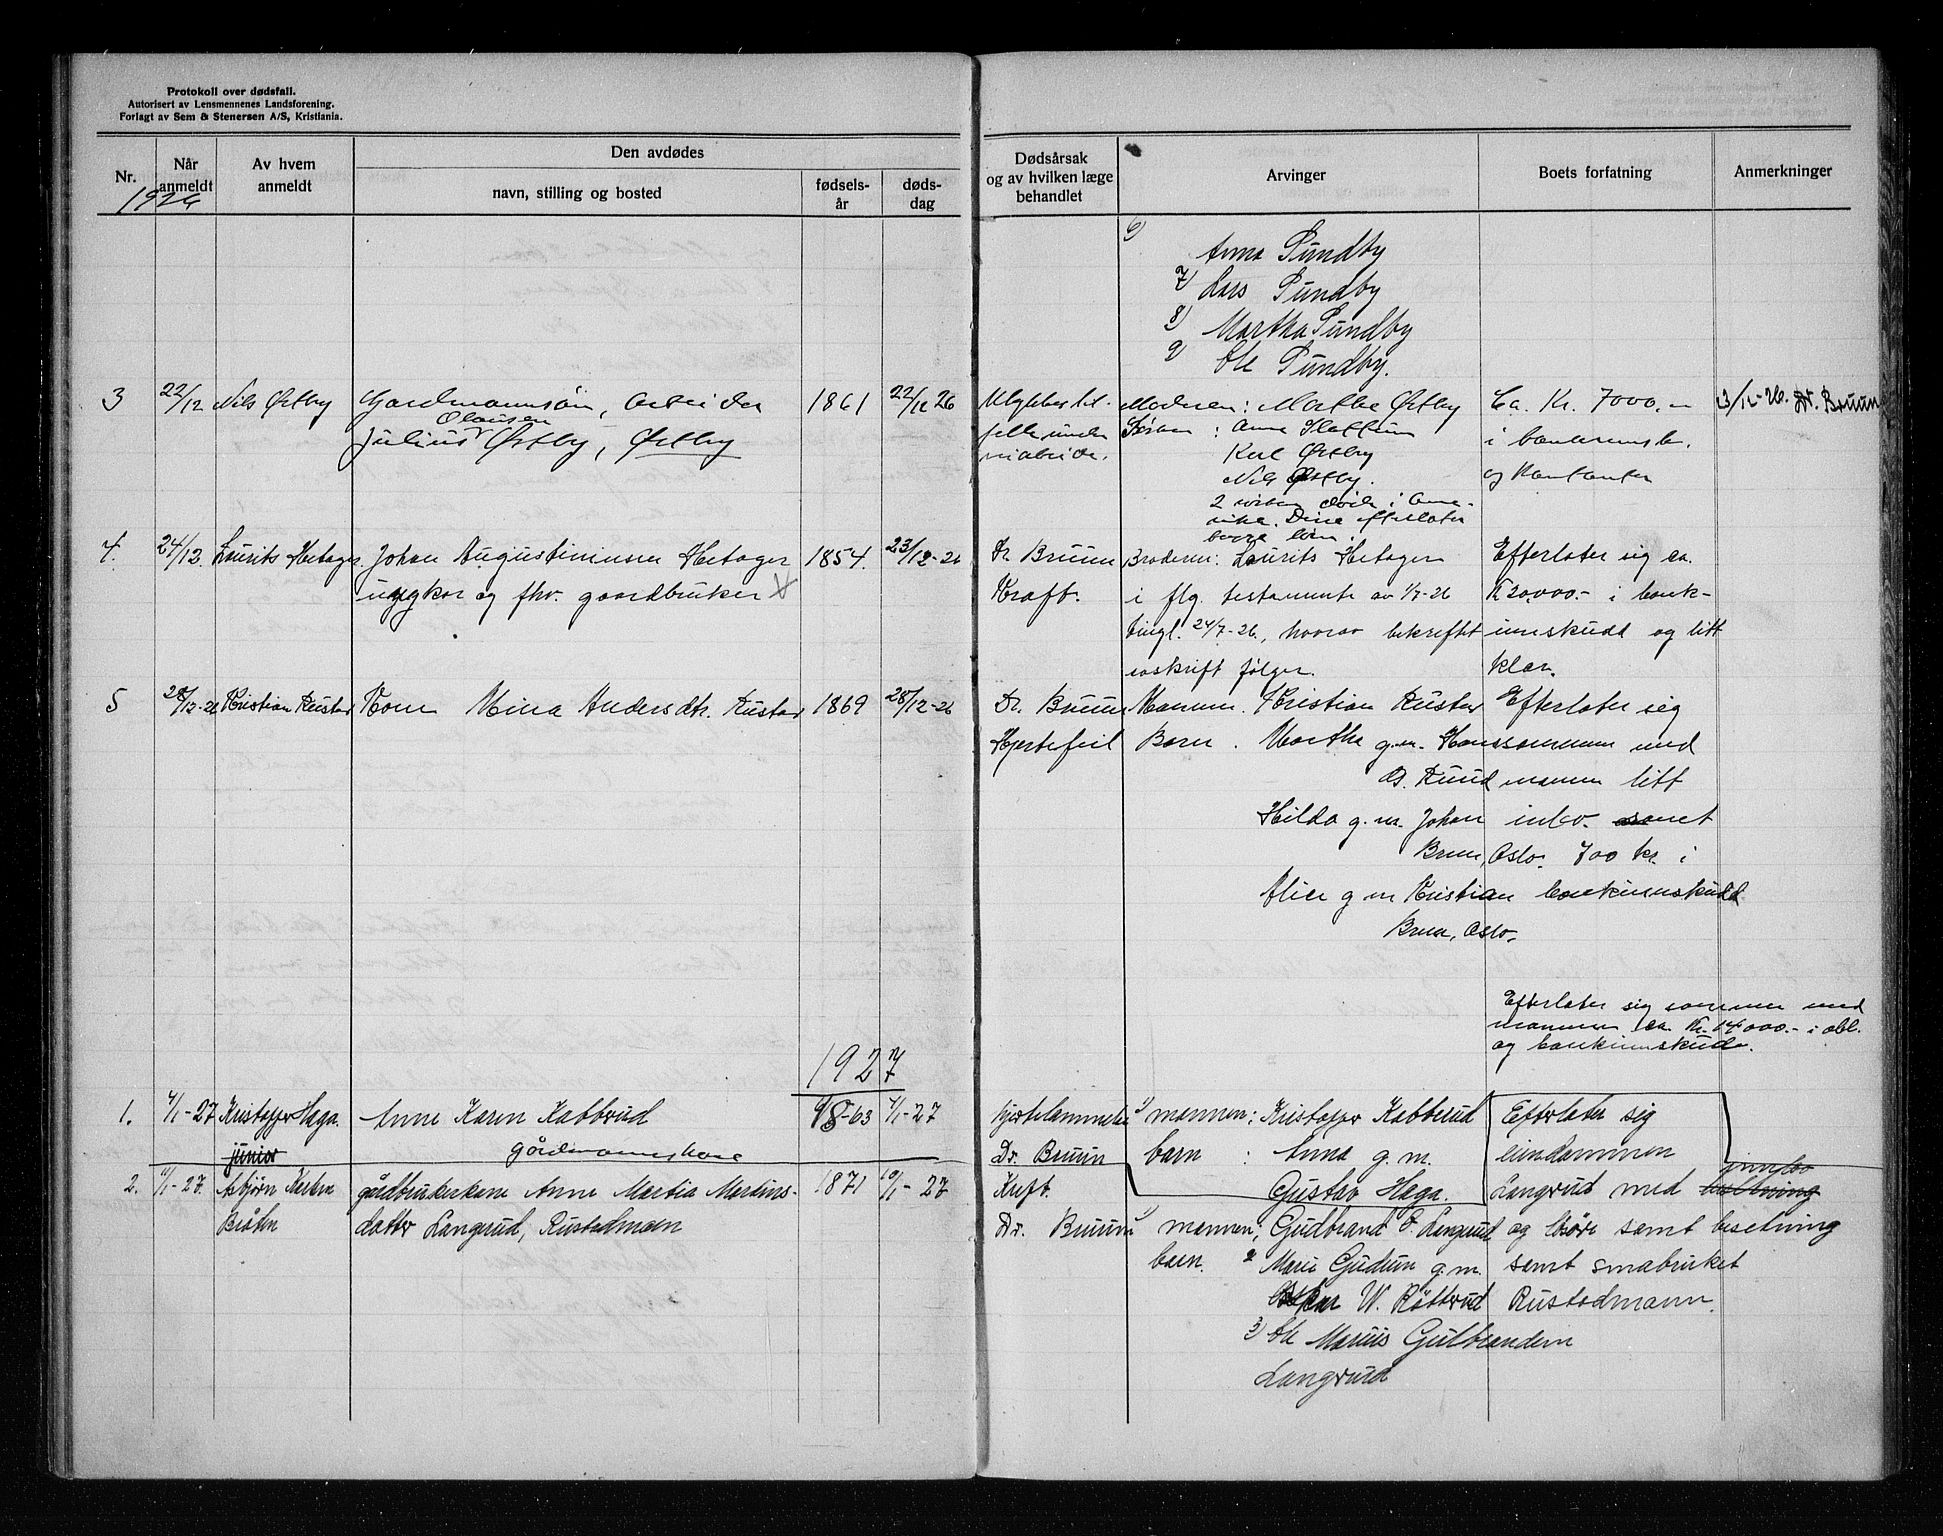 Protokoll over dødsfall.
Autorisert av Lensmennenes Landsforening.
Forlagt av Sem & Stenersen A/S, Kristiania.
Nr.
Når anmeldt
Av hvem anmeldt
Den avdødes
navn, stilling og bosted
fødsels-år
døds-dag
Dødsårsak og av hvilken læge behandlet
Arvinger
Boets forfatning
Anmerkninger
1926
6)
Anna Sundby
7) Lars Sundby
8) Martha Sundby
9) Ole Sundby.
3
22/12
Nils Østby
Gardmannsøn, arbeider
Olausen
Julius Østby, Østby
1861
22/12 26
under
Moderen: Marthe Østby
: Anna
Karl Østby
Nils Østby.
2 døde i Ame-
rika. efterlater
barn.
Ca. Kr. 7000.-
i
og kontanter
Dr. Bruun
4.
24/12.
Laurits Hetager
Johan Augustinussen Hetager
og fhv. gaardbruker X
1854.
23/12-26
Dr. Bruun
Kraft.
Broderen: Laurits Hetagen
i flg. testamente av 1/7-26
tingl. 24/7-26, hvorav bekreftet
avskrift følger.
Efterlater sig ca.
K 20,000.- i bank-
innskudd og litt
klær.
5
28/12-26
Kristian Rustad
Kone Mina Andersdtr. Rustad
1869
28/12-26
Dr. Bruun
Hjertefeil
Mannen. Kristian Rustad
Barn. Marthe g.m.
O. Ruud
Hilda g.m. Johan
Bruu, Oslo.
Alice g m Kristian
Bruu, Oslo.
Efterlater sig
sammen med
mannen litt
innbo. samt
700 kr. i
bankinnskudd
Efterlater sig sammen med
mannen ca. Kr. 14000.- i obl.
og bankinnskudd.
1927
1.
7/1-27
Kristoffer Haga.
junior
Anne Karen Kabberud
gårdmannskone
-63
7/1-27
hjertelammelse
Dr. Bruun
1) mannen: Kristoffer Kabberud
barn : Anna g.m.
Gustav Haga.
2.
11/1-27.
Asbjørn
Bråten
gårdbrukerkone Anne Martia Martins-
datter Langrud, Rustadmoen
1871
10/1-27
Kreft.
Dr. Bruun
1) mannen; Gudbrand E. Langrud
barn. 2 Marie Gudrun g.m.
Oskar W. Røtterud
3) Ole Marius Gulbrandsen
Langrud
Efterlater sig
eiendommen
Langrud med innbo
og løsøre samt besetning
samt småbruket
Rustadmoen.